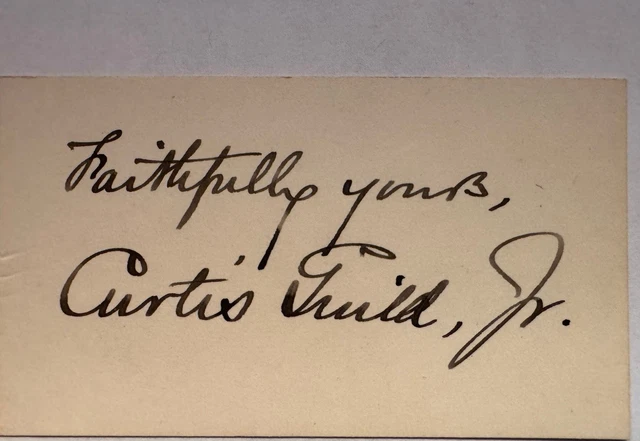 Faithfully yours,
Curtis Guild, Jr.